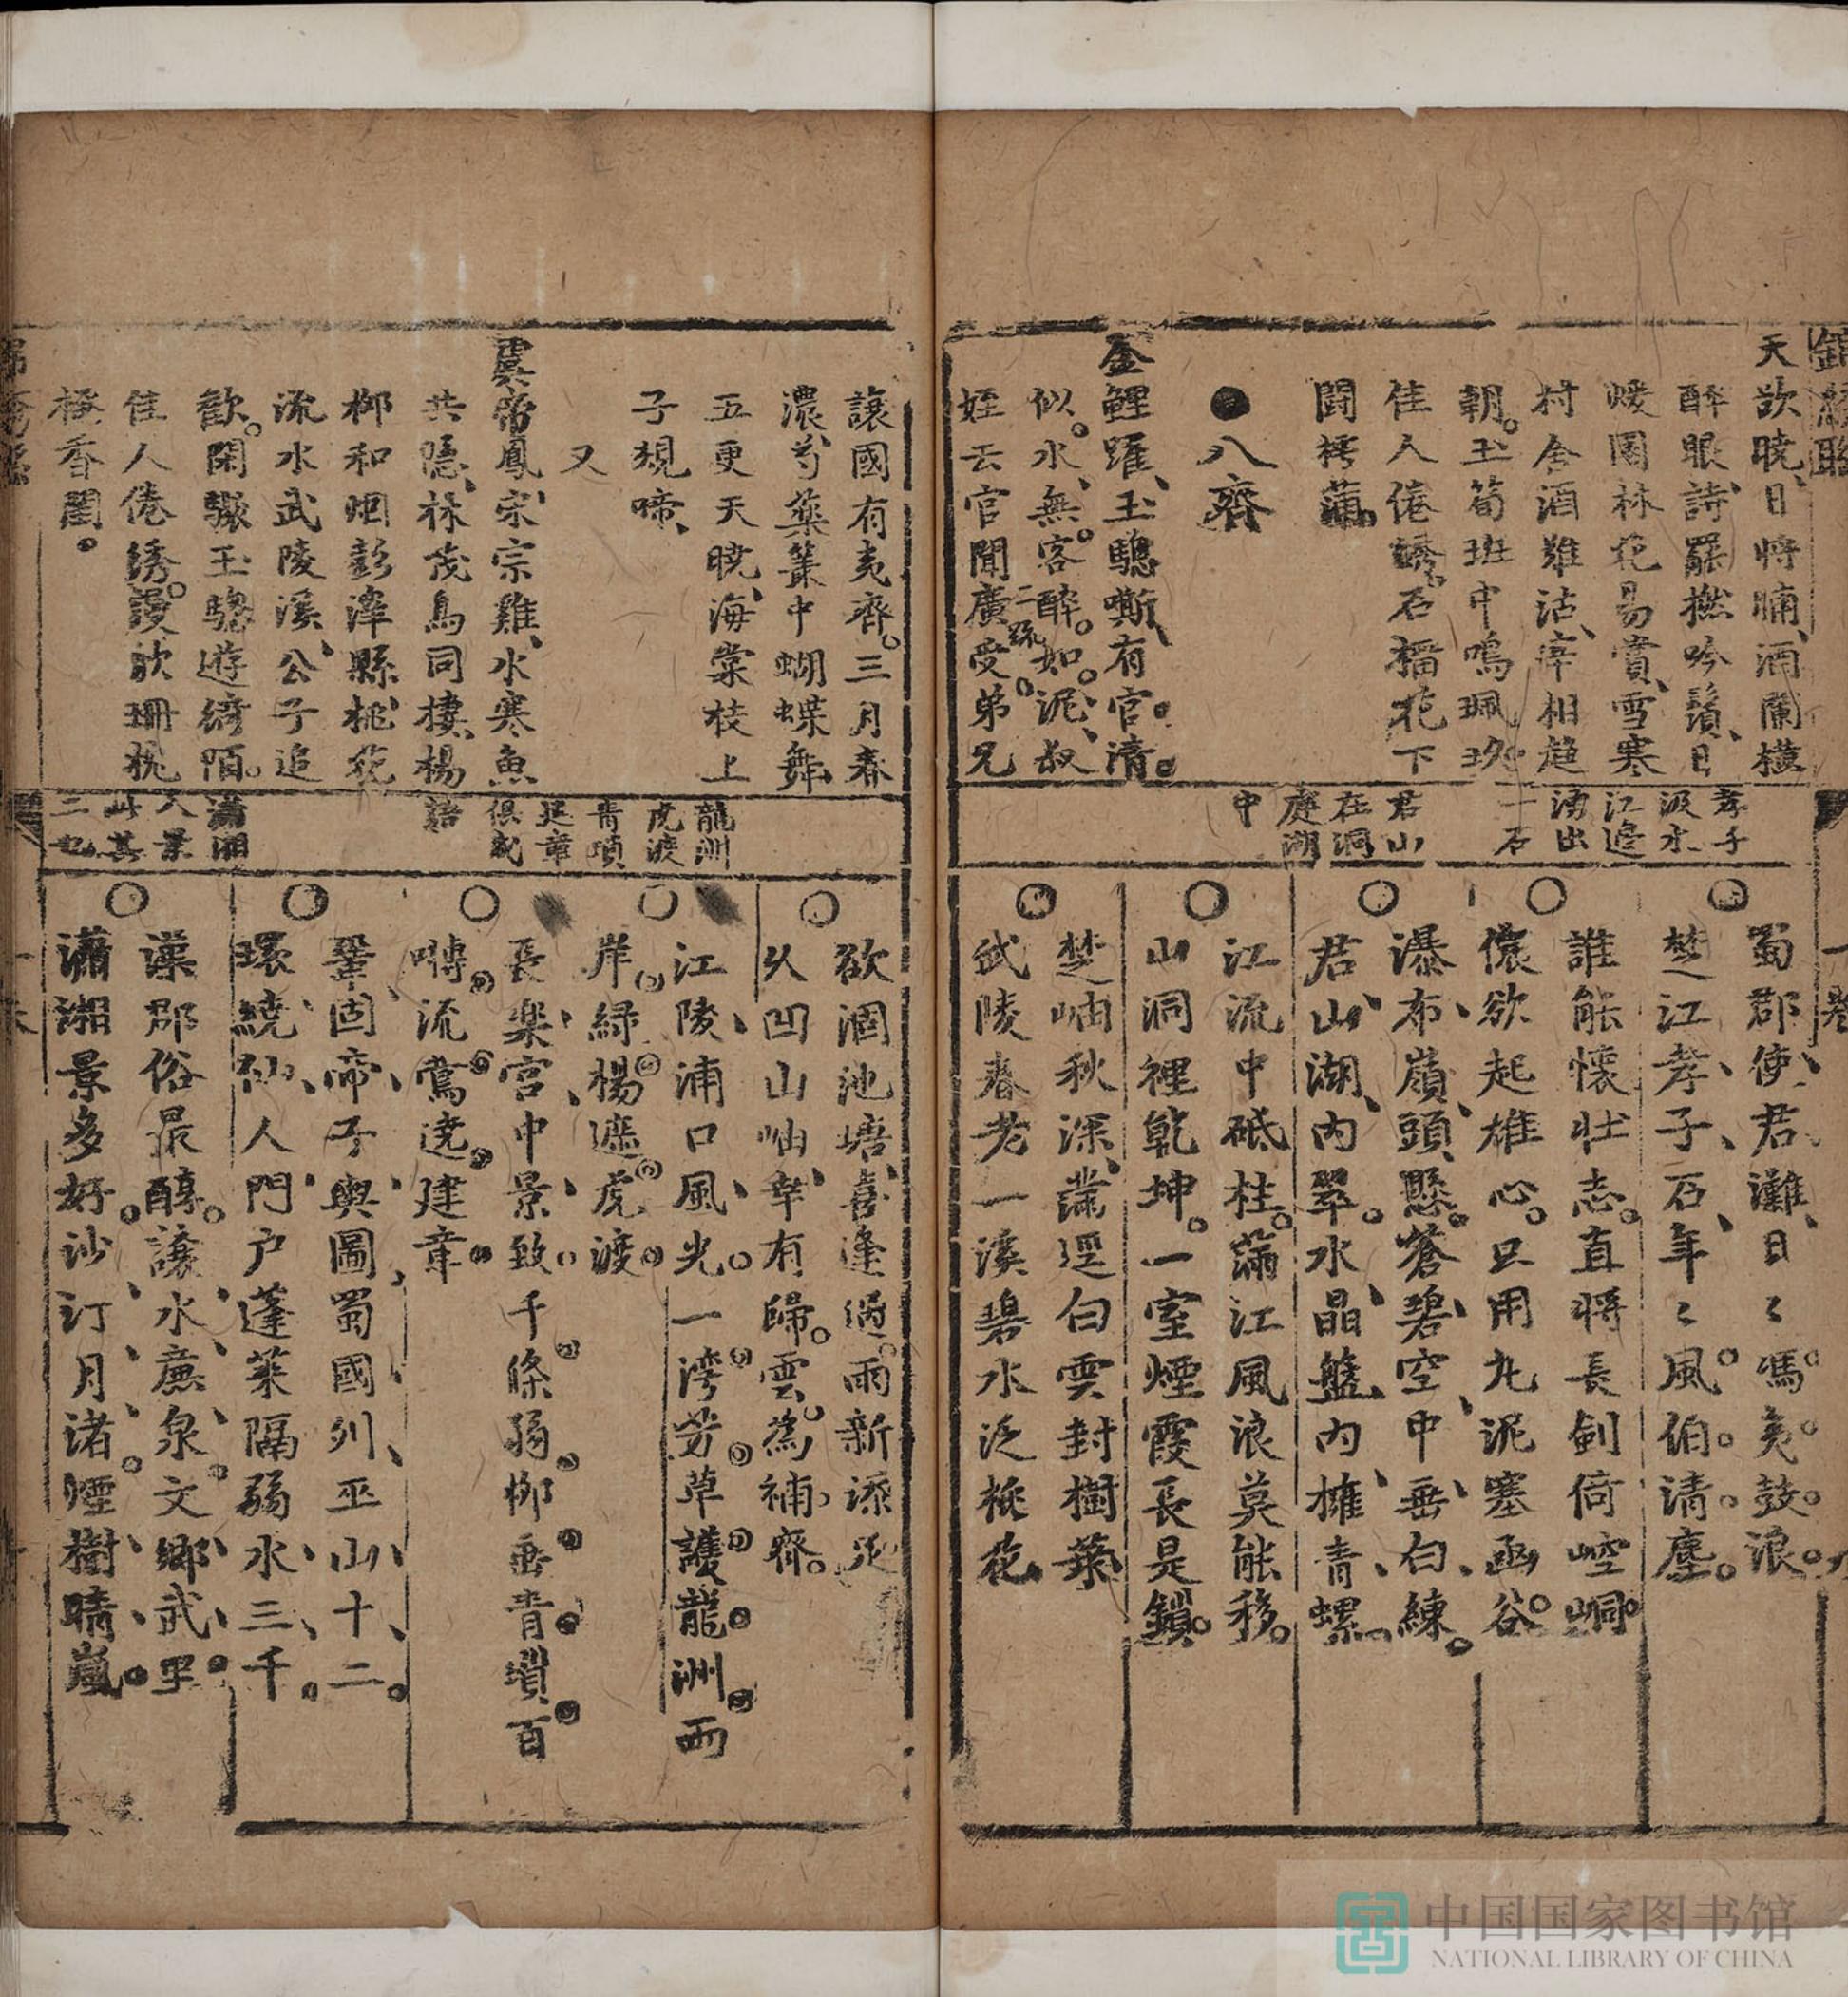 天欲曉日將晡酒闌橫
醉眼詩罷撚吟鬚日
煖園林花易賞雪寒
村舍酒難沽宰相趨
朝玉筍班中鳴珮玖
佳人倦綉石榴花下
鬪樗蒲
八齊
金鯉躍玉驄嘶有官清
似水無客醉如泥叔
姪云官聞廣受弟兄
二疏
孝子
汲水
江邉
湧出
一石
君山
在洞
庭湖
中
蜀郡使君灘日〻馮夷鼓浪
楚江孝子石年〻風伯清塵
誰能懷壯志直將長劍倚崆峒
儂欲起雄心只用丸泥塞函谷
瀑布嶺頭懸蒼碧空中垂白練
君山湖内翠水晶盤内擁青螺
江流中砥柱滿江風浪莫能移
山洞裡乾坤一室煙霞長是鎖
楚岫秋深滿逕白雲封樹葉
武陵春老一溪碧水泛桃花
讓國有夷齊三月春
濃芍藥叢中蝴蝶舞
五更天曉海棠枝上
子規啼
又
虞帝鳳宋宗雞水寒魚
共隱林茂鳥同棲楊
柳和烟彭澤縣桃花
流水武陵溪公子追
歡閑驟玉驄遊綺陌
佳人倦綉謾欹珊枕
掩香閨
龍洲
虎渡
青瑣
建章
俱武
語
瀟湘
八景
此其
二也
欲涸池塘喜逢過雨新添
久凹山岫幸有歸雲為補齊
江陵浦口風光一湾芳草護龍洲兩
岸緑楊遮虎渡
長樂宮中景致千條弱柳垂青瑣百
囀流鶯遶建章
鞏固帝子輿圖蜀國列巫山十二
環繞仙人門户蓬萊隔弱水三千
漢郡俗最醇讓水㢘泉文鄉武里
瀟湘景多好沙汀月渚煙樹晴嵐
中国国家图书馆
NATIONAL LIBRARY OF CHINA